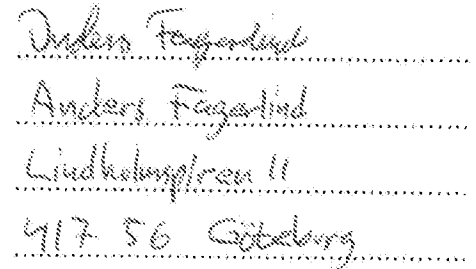 Anders Fagerlind
Anders Fagerlind
Lindholmspiren 11
417 56 Göteborg